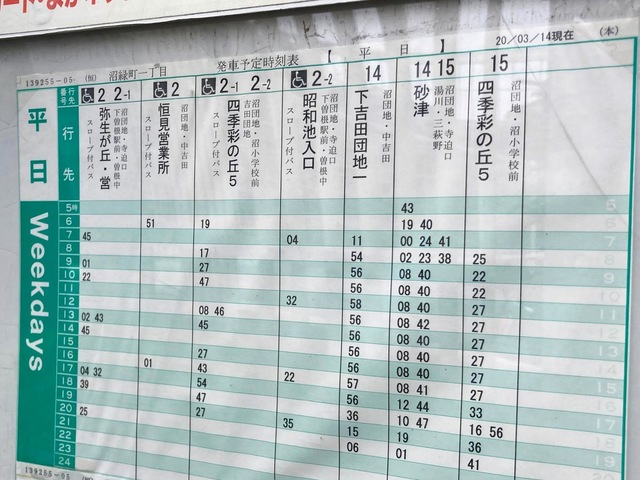 20/03/14現在 (本)
139255-05- (恒) 沼緑町一丁目 発車予定時刻表 【 平 日 】
行先番号 2 2-1 2 2-1 2-2 2-2 14 14 15 15
平日
行先
スロープ付バス 弥生が丘・営 下曽根駅前・曽根中 沼団地・寺迫口
スロープ付バス 恒見営業所 沼団地・中吉田
スロープ付バス 四季彩の丘5 吉田団地 沼団地・沼小学校前
スロープ付バス 昭和池入口 下曽根駅前・曽根中 沼団地・寺迫口
下吉田団地一 沼団地・中吉田
砂津 湯川・三萩野 沼団地・寺迫口
四季彩の丘5 沼団地・沼小学校前
Weekdays
5時 43
6 51 19 19 40
7 45 04 11 00 24 41
8 17 54 02 23 38 25
9 01 27 56 08 40 22
10 22 47 56 08 40 22
11 58 08 40 27
12 32 56 08 42 27
13 02 43 08 46 56 08 40 27
14 45 45 56 08 40 27
15 56 08 40 27
16 27 56 08 40 27
17 04 32 01 43 22 57 08 41 27
18 39 54 56 12 44 33
19 47 36 10 47 16 56
20 25 27 35 15 19 36
21 06 01 41
22
23
24
139255-05